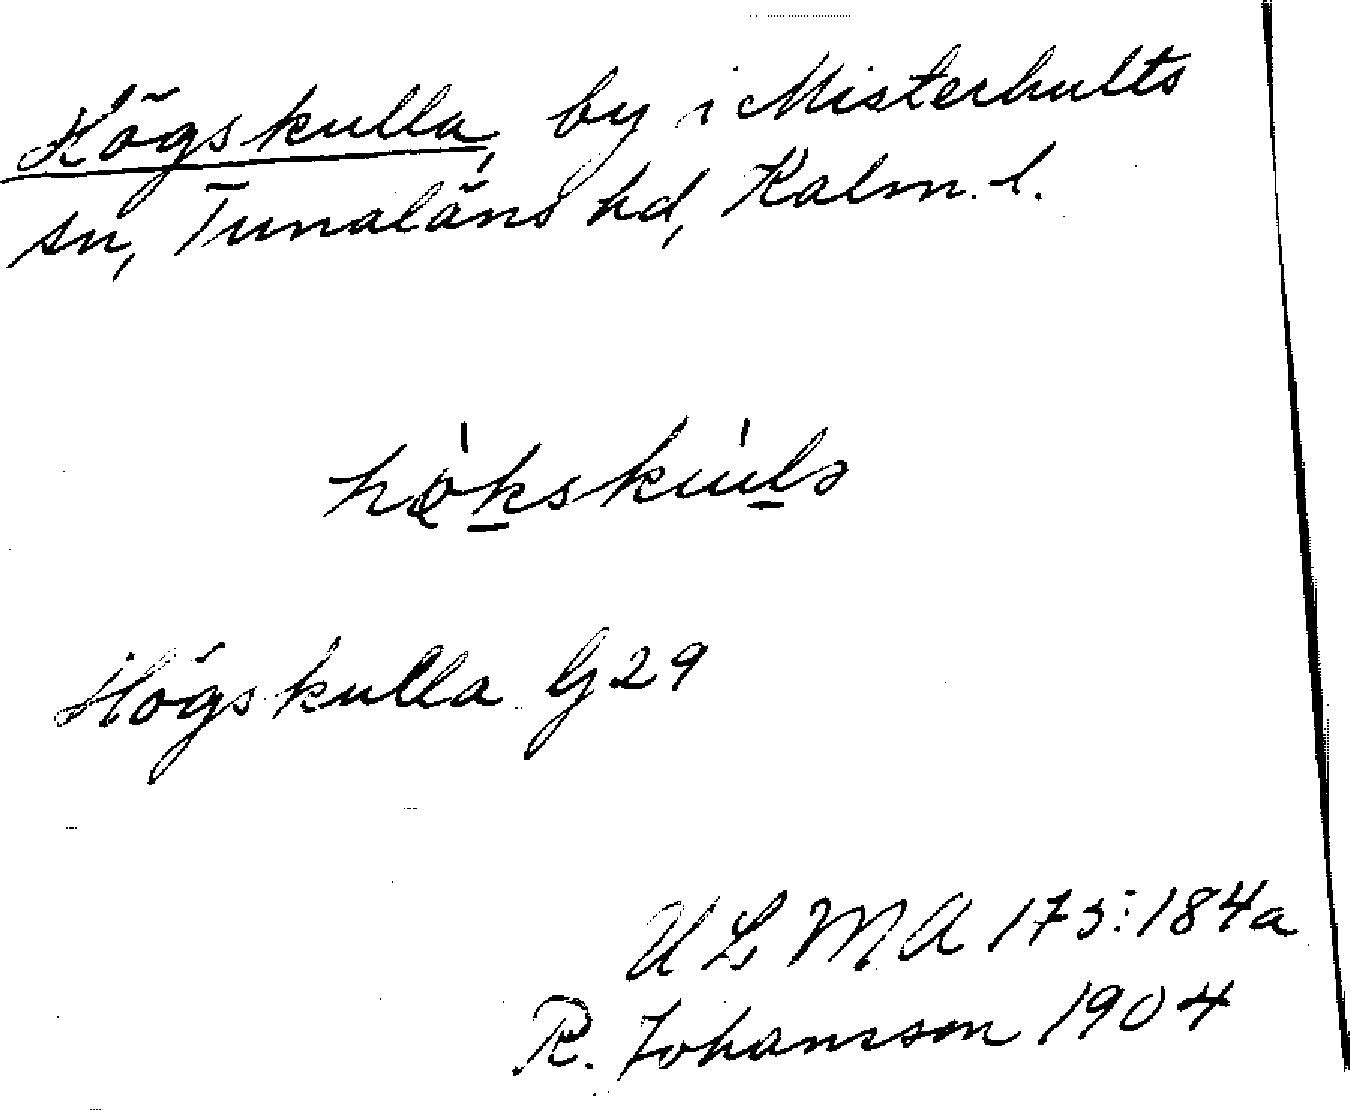 Högskulla, by i Misterhults
sn, Tunaläns hd, Kalm. l.
Högskulla G 29
ULMA 173:184a
R. Johansson 1904